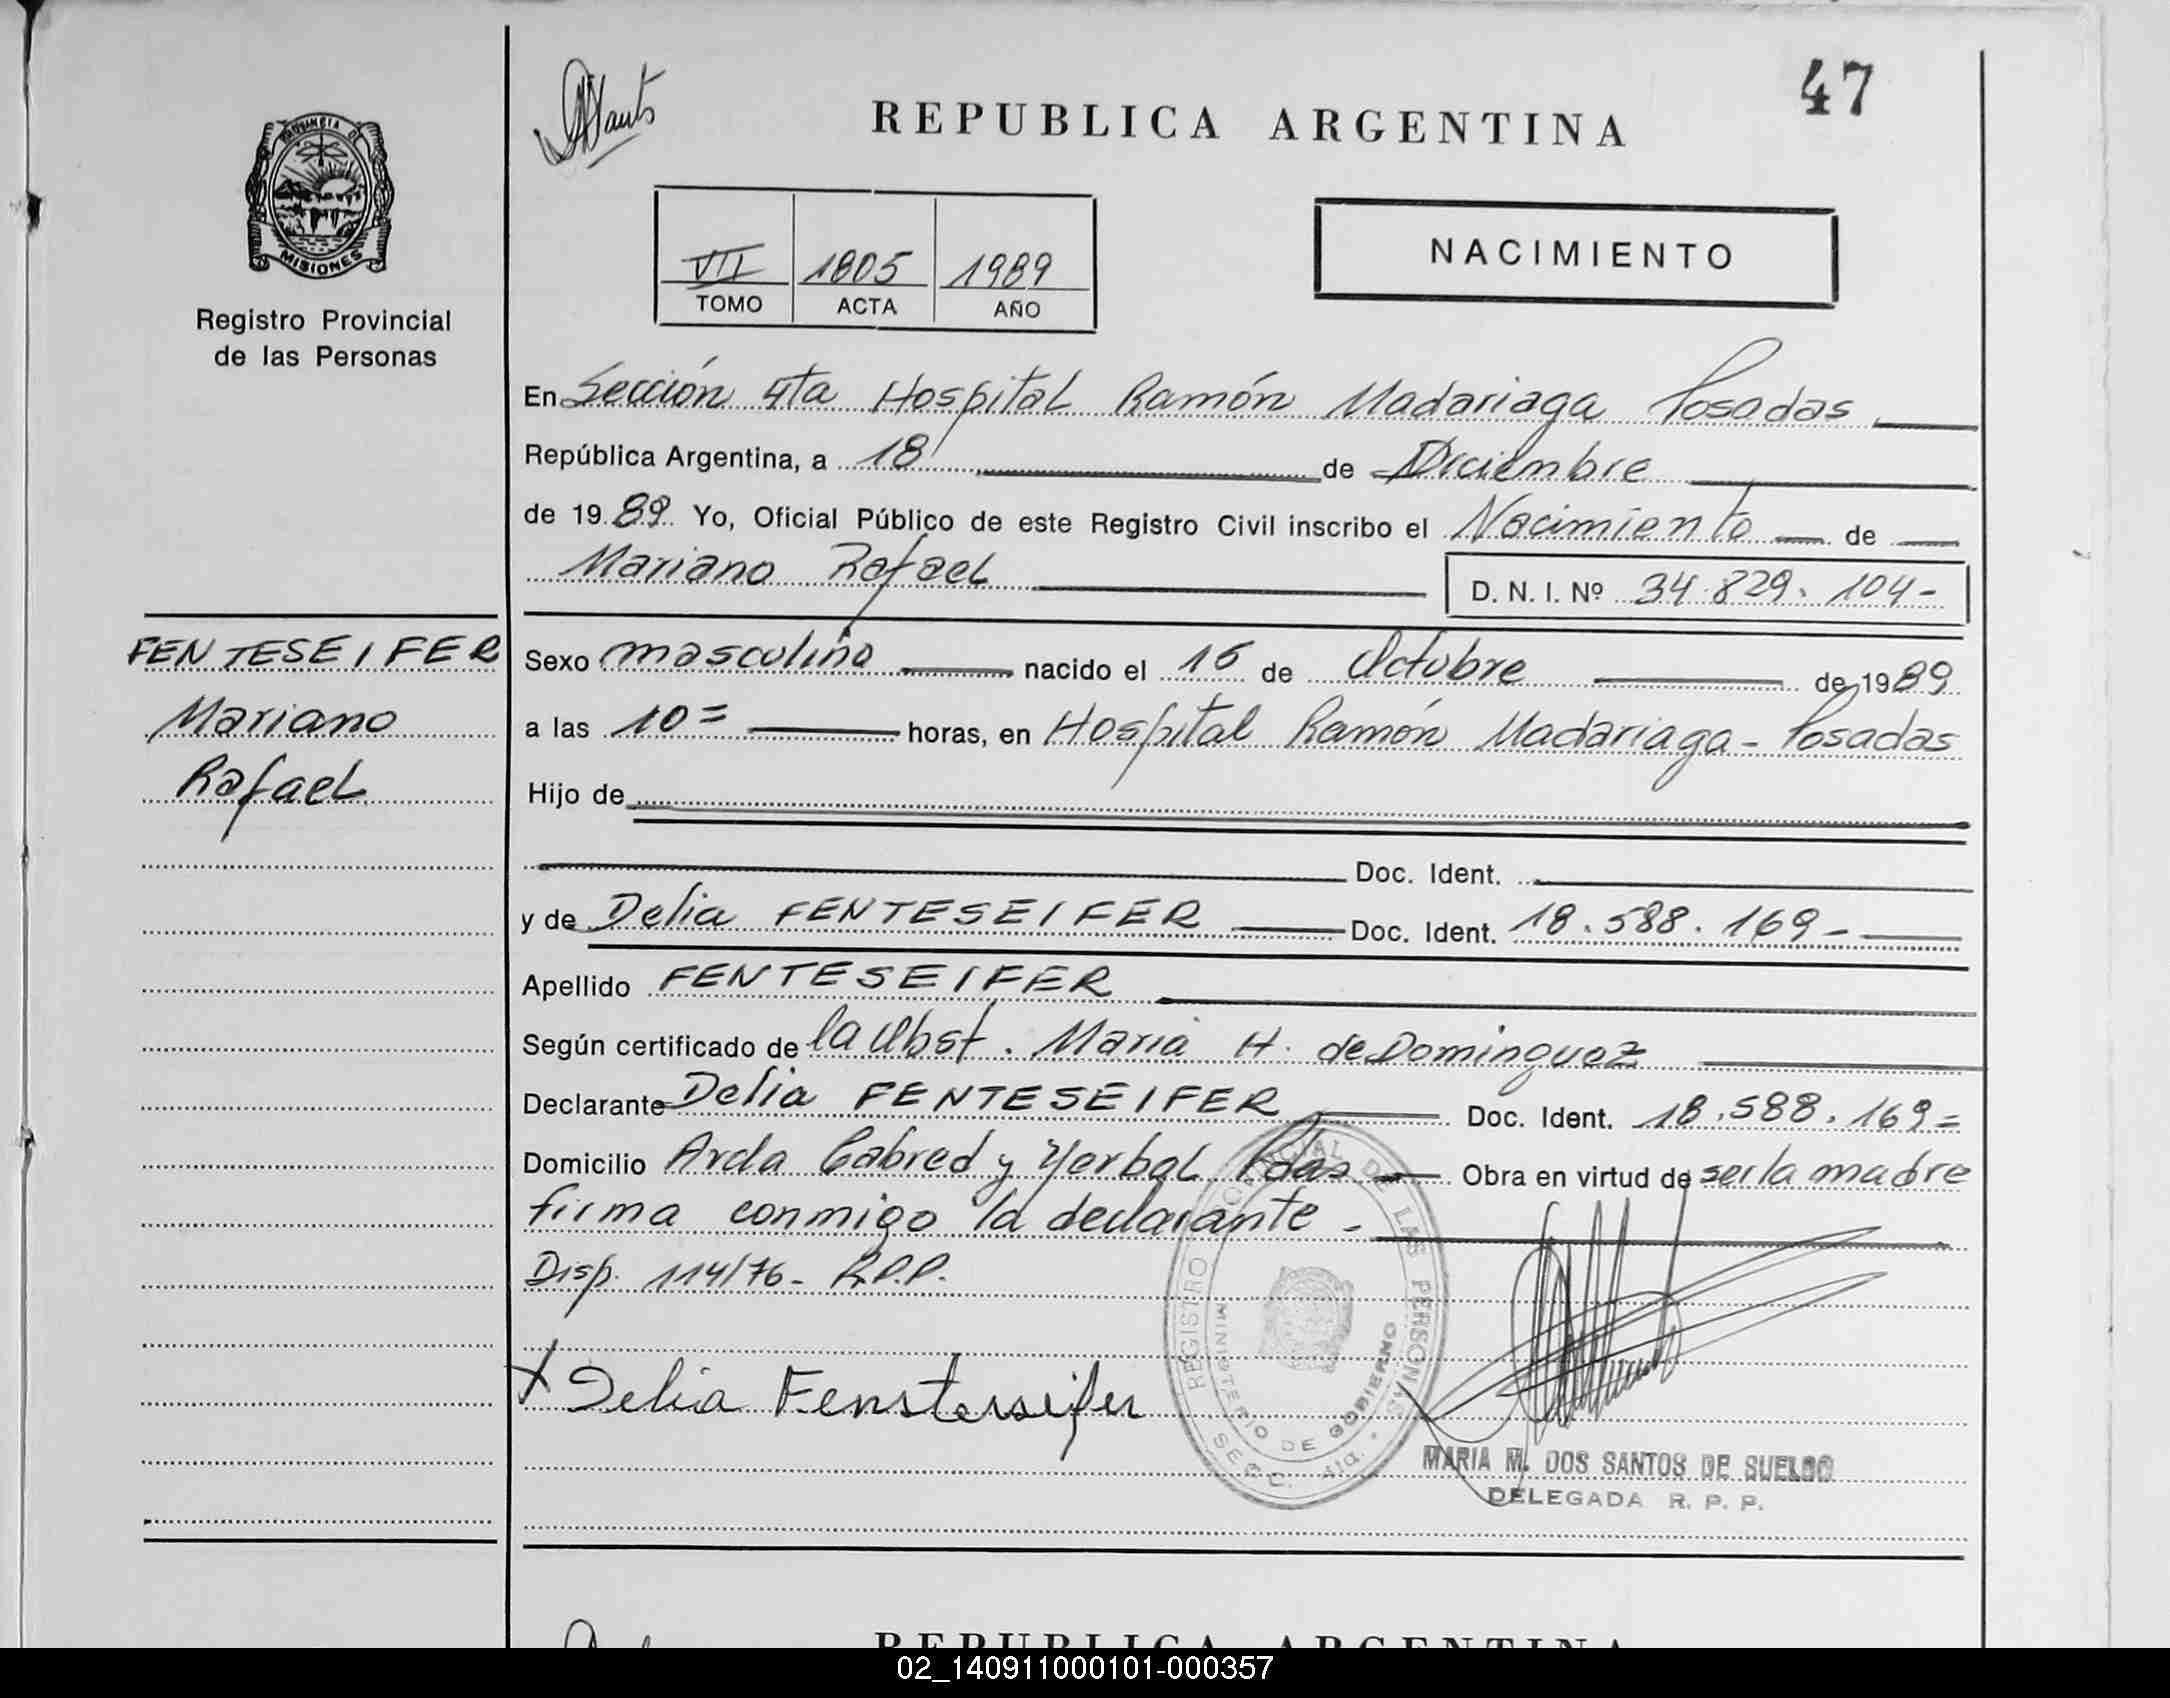 47
REPUBLICA ARGENTINA
PROVINCIA DE
MISIONES
Registro Provincial
de las Personas
VII 1805 1989
TOMO ACTA AÑO
NACIMIENTO
En Sección 4ta Hospital Ramón Madariaga Posadas
República Argentina, a 18 de Diciembre
de 1989. Yo, Oficial Público de este Registro Civil inscribo el Nacimiento de
Mariano Rafael D. N. I. Nº 34.829.104-
FENTESEIFER
Mariano
Rafael
Sexo masculino nacido el 16 de Octubre de 1989
a las 10= horas, en Hospital Ramón Madariaga - Posadas
Hijo de
Doc. Ident.
y de Delia FENTESEIFER Doc. Ident. 18.588.169-
Apellido FENTESEIFER
Según certificado de la Obst. Maria H. de Dominguez
Declarante Delia FENTESEIFER Doc. Ident. 18.588.169=
Domicilio Avda Cabred y Yerbal Pdas Obra en virtud de ser la madre
firma conmigo la declarante.
Disp. 114/76- R.P.P.
X Delia Fensterseifer
REGISTRO PROVINCIAL DE LAS PERSONAS
MINISTERIO DE GOBIERNO
SECC. 4ta.
MARIA M. DOS SANTOS DE SUELDO
DELEGADA R. P. P.
REPUBLICA ARGENTINA
02_140911000101-000357